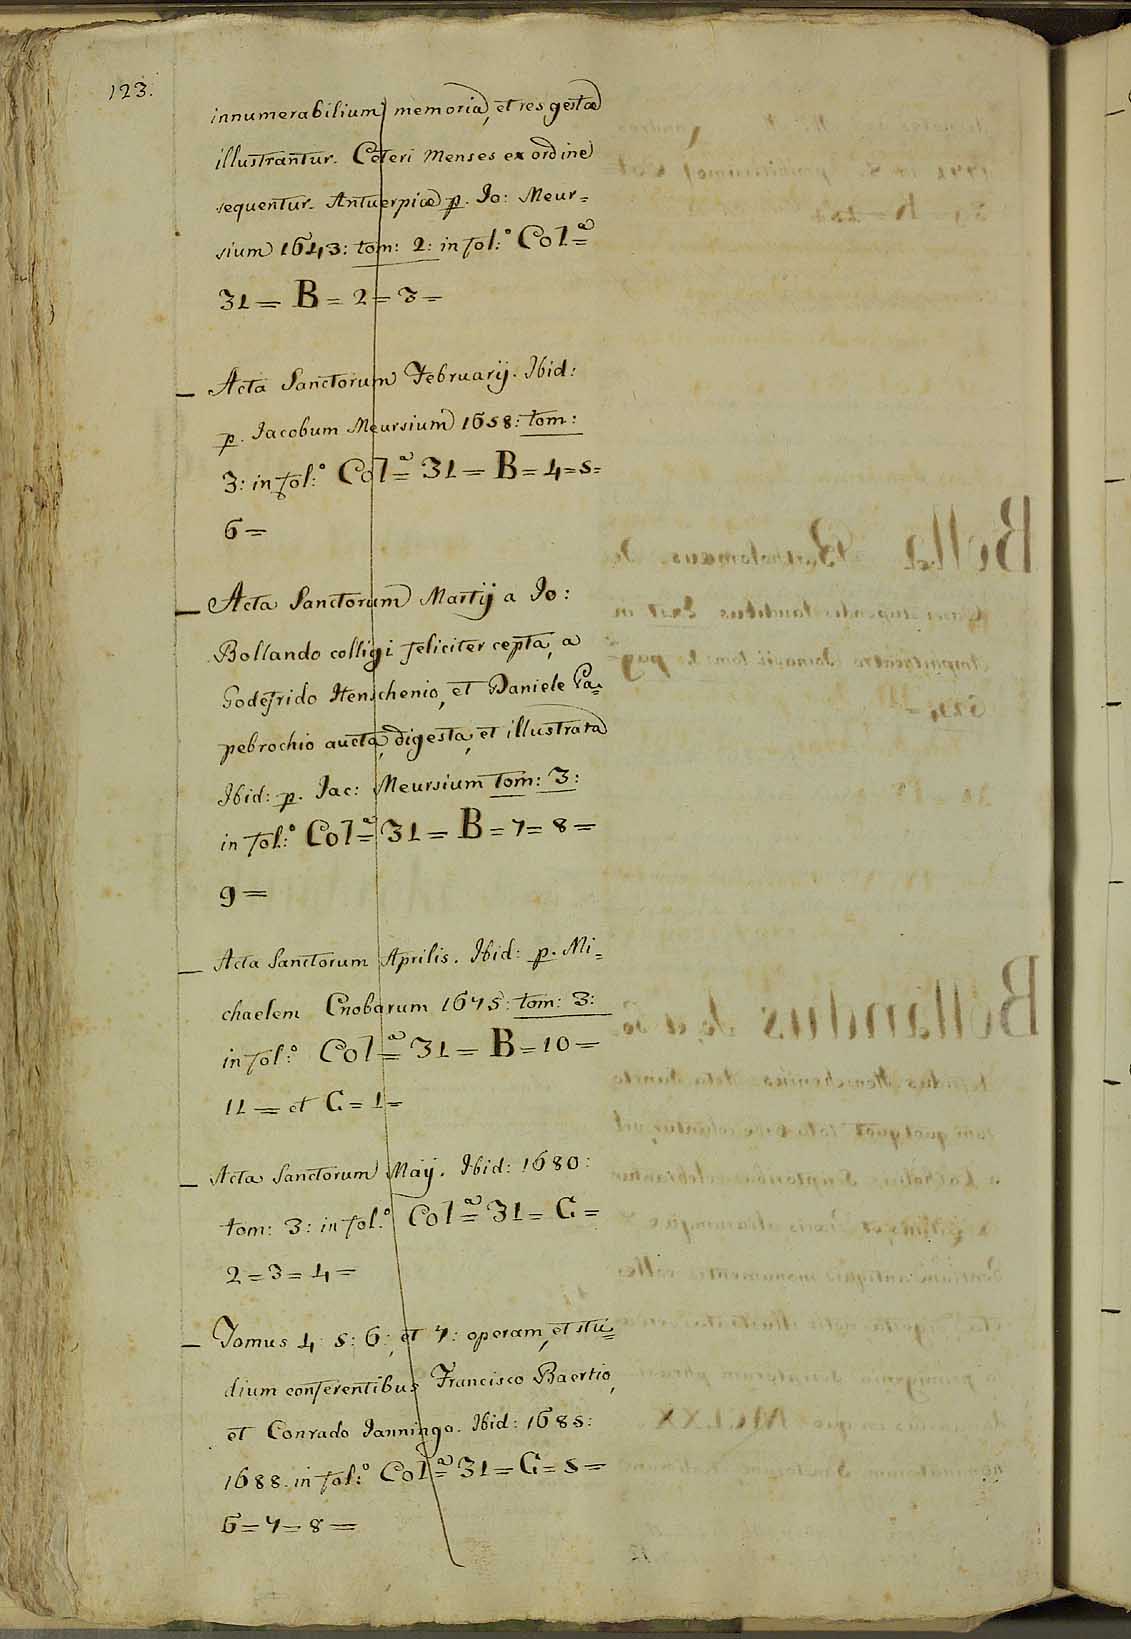 123.
innumerabilium memoria, et res gestæ
illustrantur. Ceteri Menses ex ordine
sequentur. Antuerpiæ p. Io: Meur=
sium 1643: tom: 2: in fol:º Colª=
31 = B = 2 = 3 =
— Acta Sanctorum Februarij. Ibid:
p. Iacobum Meursium 1658: tom:
3: in fol:º Colª= 31 = B = 4 = 5 =
6 =
— Acta Sanctorum Martij a Io:
Bollando colligi feliciter cepta, a
Godefrido Henschenio, et Daniele Pa=
pebrochio aucta, digesta, et illustrata
Ibid: p. Iac: Meursium tom: 3:
in fol:º Colª= 31 = B = 7 = 8 =
9 =
— Acta Sanctorum Aprilis. Ibid: p. Mi=
chaelem Cnobarum 1675: tom: 3:
in fol:º Colª= 31 = B = 10 =
11 = et C = 1 =
— Acta Sanctorum Maij. Ibid: 1680:
tom: 3: in fol:º Colª= 31 = C =
2 = 3 = 4 =
— Tomus 4: 5: 6:, et 7: operam, et stu=
dium conferentibus Francisco Baertio,
et Conrado Ianningo. Ibid: 1685:
1688. in fol:º Colª= 31 = C = 5 =
6 = 7 = 8 =